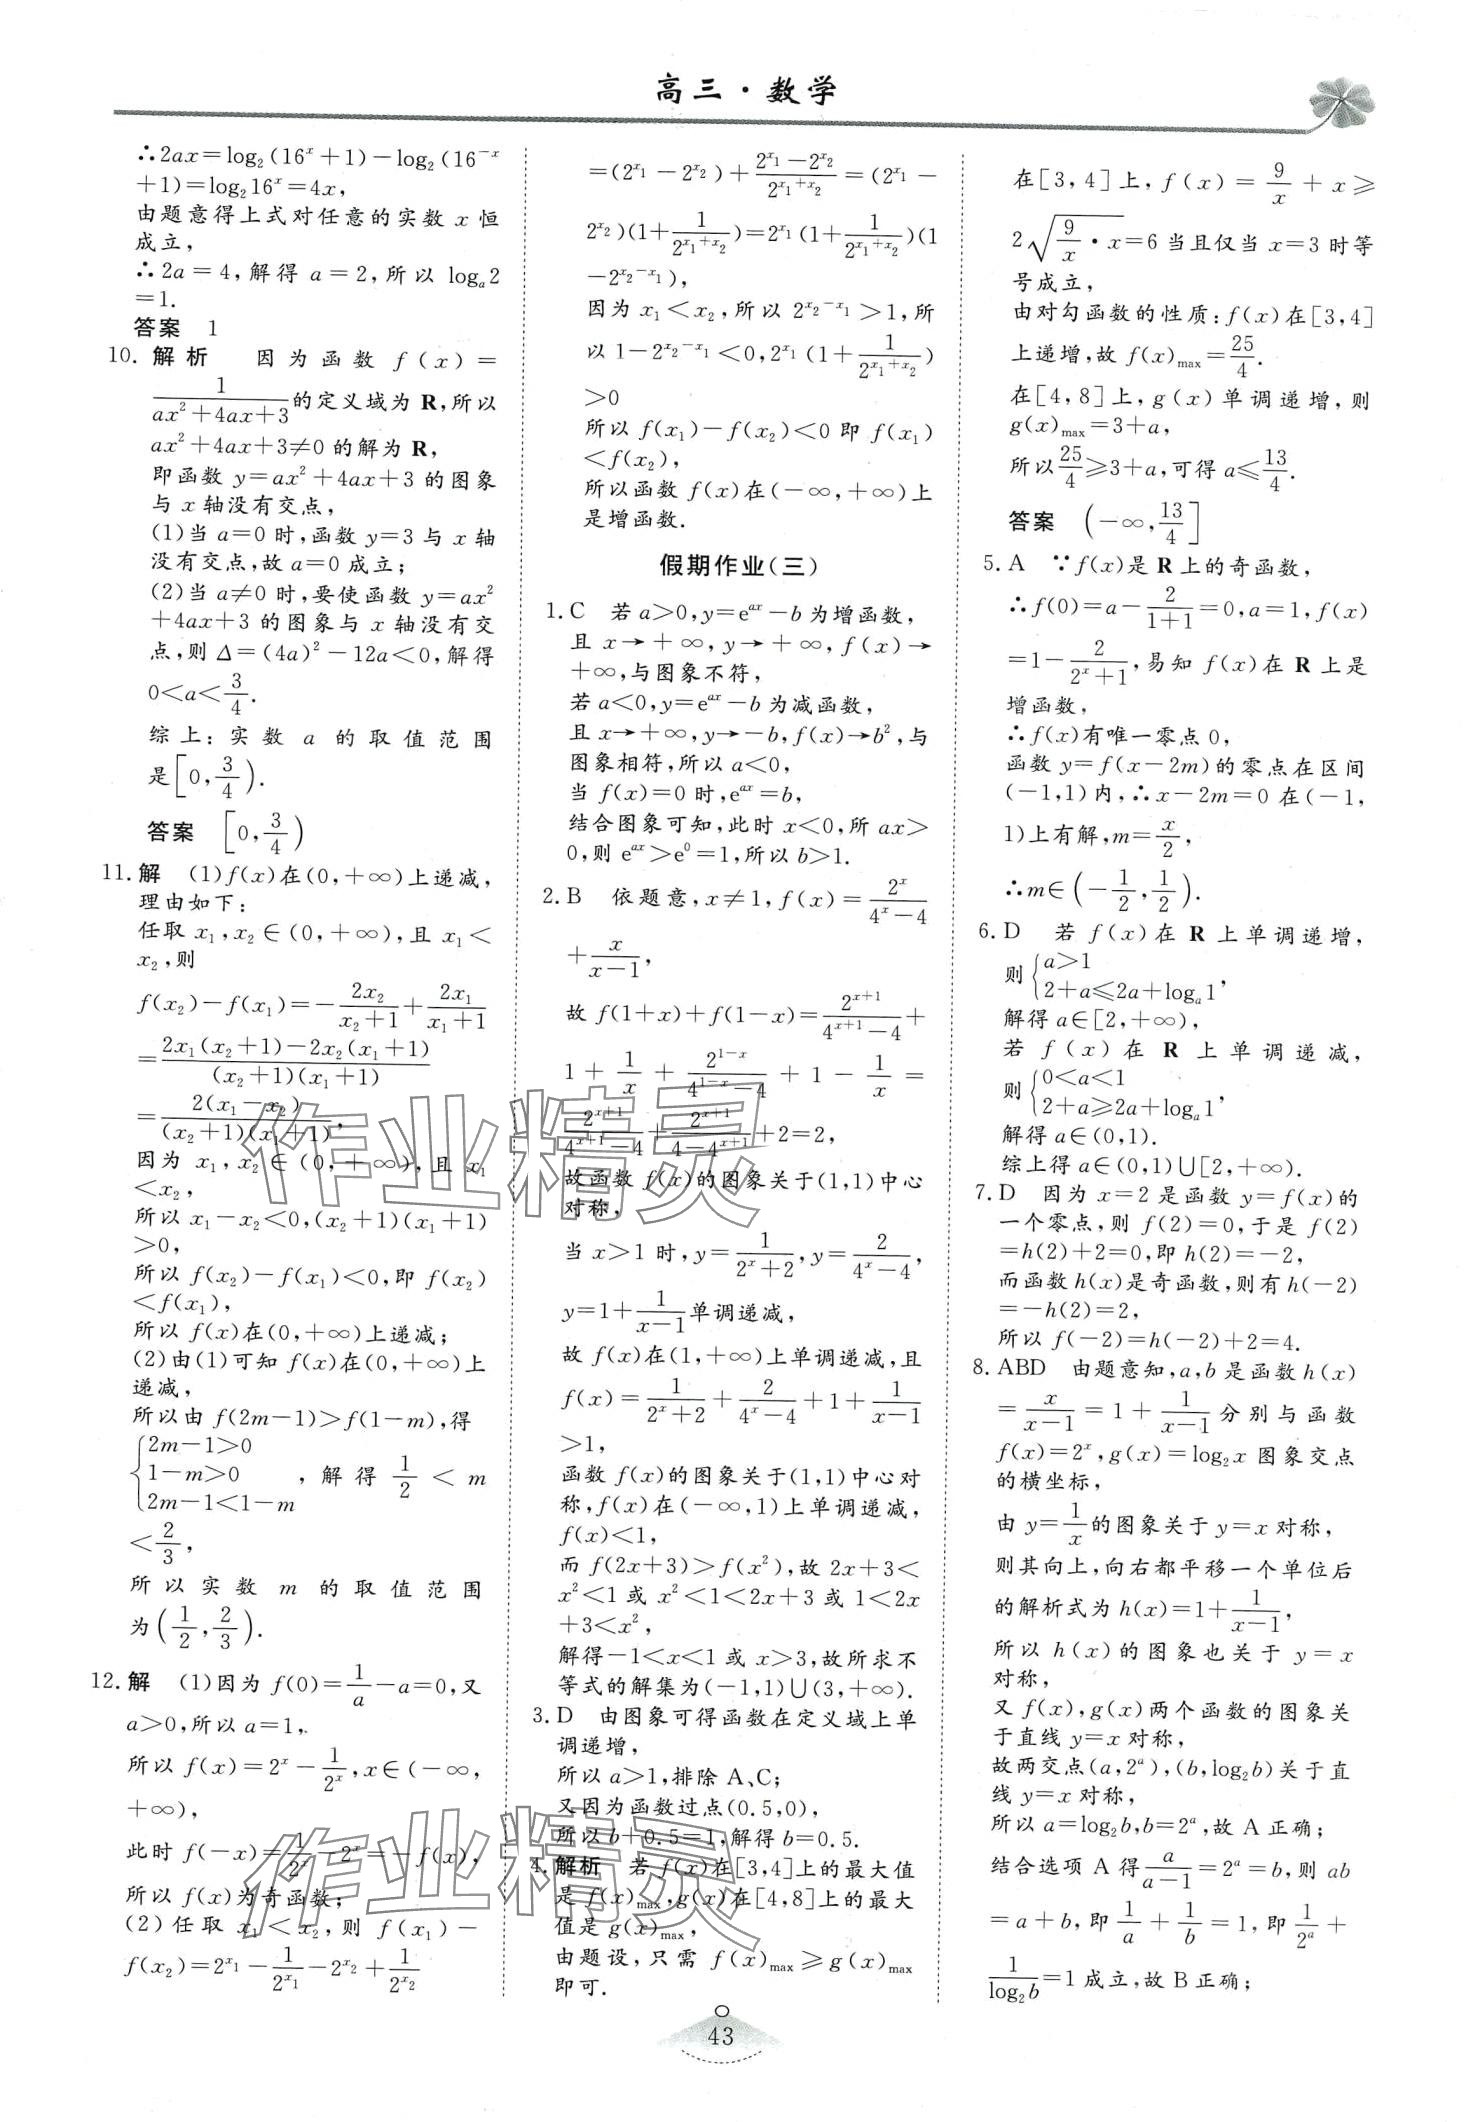 高三·数学
∴2ax=log₂(16ˣ+1)-log₂(16⁻ˣ
+1)=log₂16ˣ=4x,
由题意得上式对任意的实数 x 恒
成立,
∴2a=4,解得 a=2,所以 logₐ2
=1.
答案 1
10. 解析 因为函数 f(x)=
1/(ax²+4ax+3)的定义域为 R,所以
ax²+4ax+3≠0 的解为 R,
即函数 y=ax²+4ax+3 的图象
与 x 轴没有交点,
(1)当 a=0 时,函数 y=3 与 x 轴
没有交点,故 a=0 成立;
(2)当 a≠0 时,要使函数 y=ax²
+4ax+3 的图象与 x 轴没有交
点,则 Δ=(4a)²-12a<0,解得
0<a<3/4.
综上:实数 a 的取值范围
是[0,3/4).
答案 [0,3/4)
11. 解 (1)f(x)在(0,+∞)上递减,
理由如下:
任取 x₁,x₂∈(0,+∞),且 x₁<
x₂,则
f(x₂)-f(x₁)=-2x₂/(x₂+1)+2x₁/(x₁+1)
=[2x₁(x₂+1)-2x₂(x₁+1)]/[(x₂+1)(x₁+1)]
=2(x₁-x₂)/[(x₂+1)(x₁+1)],
因为 x₁,x₂∈(0,+∞),且 x₁
<x₂,
所以 x₁-x₂<0,(x₂+1)(x₁+1)
>0,
所以 f(x₂)-f(x₁)<0,即 f(x₂)
<f(x₁),
所以 f(x)在(0,+∞)上递减;
(2)由(1)可知 f(x)在(0,+∞)上
递减,
所以由 f(2m-1)>f(1-m),得
{2m-1>0
1-m>0 ,解得 1/2<m
2m-1<1-m
<2/3,
所以实数 m 的取值范围
为(1/2,2/3).
12. 解 (1)因为 f(0)=1/a-a=0,又
a>0,所以 a=1,
所以 f(x)=2ˣ-1/2ˣ,x∈(-∞,
+∞),
此时 f(-x)=1/2ˣ-2ˣ=-f(x),
所以 f(x)为奇函数;
(2)任取 x₁<x₂,则 f(x₁)-
f(x₂)=2^x₁-1/2^x₁-2^x₂+1/2^x₂
=(2^x₁-2^x₂)+(2^x₁-2^x₂)/2^(x₁+x₂)=(2^x₁-
2^x₂)(1+1/2^(x₁+x₂))=2^x₁(1+1/2^(x₁+x₂))(1
-2^(x₂-x₁)),
因为 x₁<x₂,所以 2^(x₂-x₁)>1,所
以 1-2^(x₂-x₁)<0,2^x₁(1+1/2^(x₁+x₂))
>0
所以 f(x₁)-f(x₂)<0 即 f(x₁)
<f(x₂),
所以函数 f(x)在(-∞,+∞)上
是增函数.
假期作业(三)
1. C 若 a>0,y=e^(ax)-b 为增函数,
且 x→+∞,y→+∞,f(x)→
+∞,与图象不符,
若 a<0,y=e^(ax)-b 为减函数,
且 x→+∞,y→-b,f(x)→b²,与
图象相符,所以 a<0,
当 f(x)=0 时,e^(ax)=b,
结合图象可知,此时 x<0,所 ax>
0,则 e^(ax)>e⁰=1,所以 b>1.
2. B 依题意,x≠1,f(x)=2ˣ/(4ˣ-4)
+x/(x-1),
故 f(1+x)+f(1-x)=2^(x+1)/(4^(x+1)-4)+
1+1/x+2^(1-x)/(4^(1-x)-4)+1-1/x=
2^(x+1)/(4^(x+1)-4)+2^(x+1)/(4-4^(x+1))+2=2,
故函数 f(x)的图象关于(1,1)中心
对称,
当 x>1 时,y=1/(2ˣ+2),y=2/(4ˣ-4),
y=1+1/(x-1)单调递减,
故 f(x)在(1,+∞)上单调递减,且
f(x)=1/(2ˣ+2)+2/(4ˣ-4)+1+1/(x-1)
>1,
函数 f(x)的图象关于(1,1)中心对
称,f(x)在(-∞,1)上单调递减,
f(x)<1,
而 f(2x+3)>f(x²),故 2x+3<
x²<1 或 x²<1<2x+3 或 1<2x
+3<x²,
解得-1<x<1 或 x>3,故所求不
等式的解集为(-1,1)∪(3,+∞).
3. D 由图象可得函数在定义域上单
调递增,
所以 a>1,排除 A、C;
又因为函数过点(0.5,0),
所以 b+0.5=1,解得 b=0.5.
4. 解析 若 f(x)在[3,4]上的最大值
是 f(x)max,g(x)在[4,8]上的最大
值是 g(x)max,
由题设,只需 f(x)max≥g(x)max
即可.
在[3,4]上,f(x)=9/x+x≥
2√(9/x·x)=6 当且仅当 x=3 时等
号成立,
由对勾函数的性质:f(x)在[3,4]
上递增,故 f(x)max=25/4.
在[4,8]上,g(x)单调递增,则
g(x)max=3+a,
所以25/4≥3+a,可得 a≤13/4.
答案 (-∞,13/4]
5. A ∵f(x)是 R 上的奇函数,
∴f(0)=a-2/(1+1)=0,a=1,f(x)
=1-2/(2ˣ+1),易知 f(x)在 R 上是
增函数,
∴f(x)有唯一零点 0,
函数 y=f(x-2m)的零点在区间
(-1,1)内,∴x-2m=0 在(-1,
1)上有解,m=x/2,
∴m∈(-1/2,1/2).
6. D 若 f(x)在 R 上单调递增,
则{a>1
2+a≤2a+logₐ1,
解得 a∈[2,+∞),
若 f(x)在 R 上单调递减,
则{0<a<1
2+a≥2a+logₐ1,
解得 a∈(0,1).
综上得 a∈(0,1)∪[2,+∞).
7. D 因为 x=2 是函数 y=f(x)的
一个零点,则 f(2)=0,于是 f(2)
=h(2)+2=0,即 h(2)=-2,
而函数 h(x)是奇函数,则有 h(-2)
=-h(2)=2,
所以 f(-2)=h(-2)+2=4.
8. ABD 由题意知,a,b 是函数 h(x)
=x/(x-1)=1+1/(x-1)分别与函数
f(x)=2ˣ,g(x)=log₂x 图象交点
的横坐标,
由 y=1/x的图象关于 y=x 对称,
则其向上,向右都平移一个单位后
的解析式为 h(x)=1+1/(x-1),
所以 h(x)的图象也关于 y=x
对称,
又 f(x),g(x)两个函数的图象关
于直线 y=x 对称,
故两交点(a,2ᵃ),(b,log₂b)关于直
线 y=x 对称,
所以 a=log₂b,b=2ᵃ,故 A 正确;
结合选项 A 得a/(a-1)=2ᵃ=b,则 ab
=a+b,即 1/a+1/b=1,即 1/2ᵃ+
1/log₂b=1 成立,故 B 正确;
43
作业精灵
作业精灵